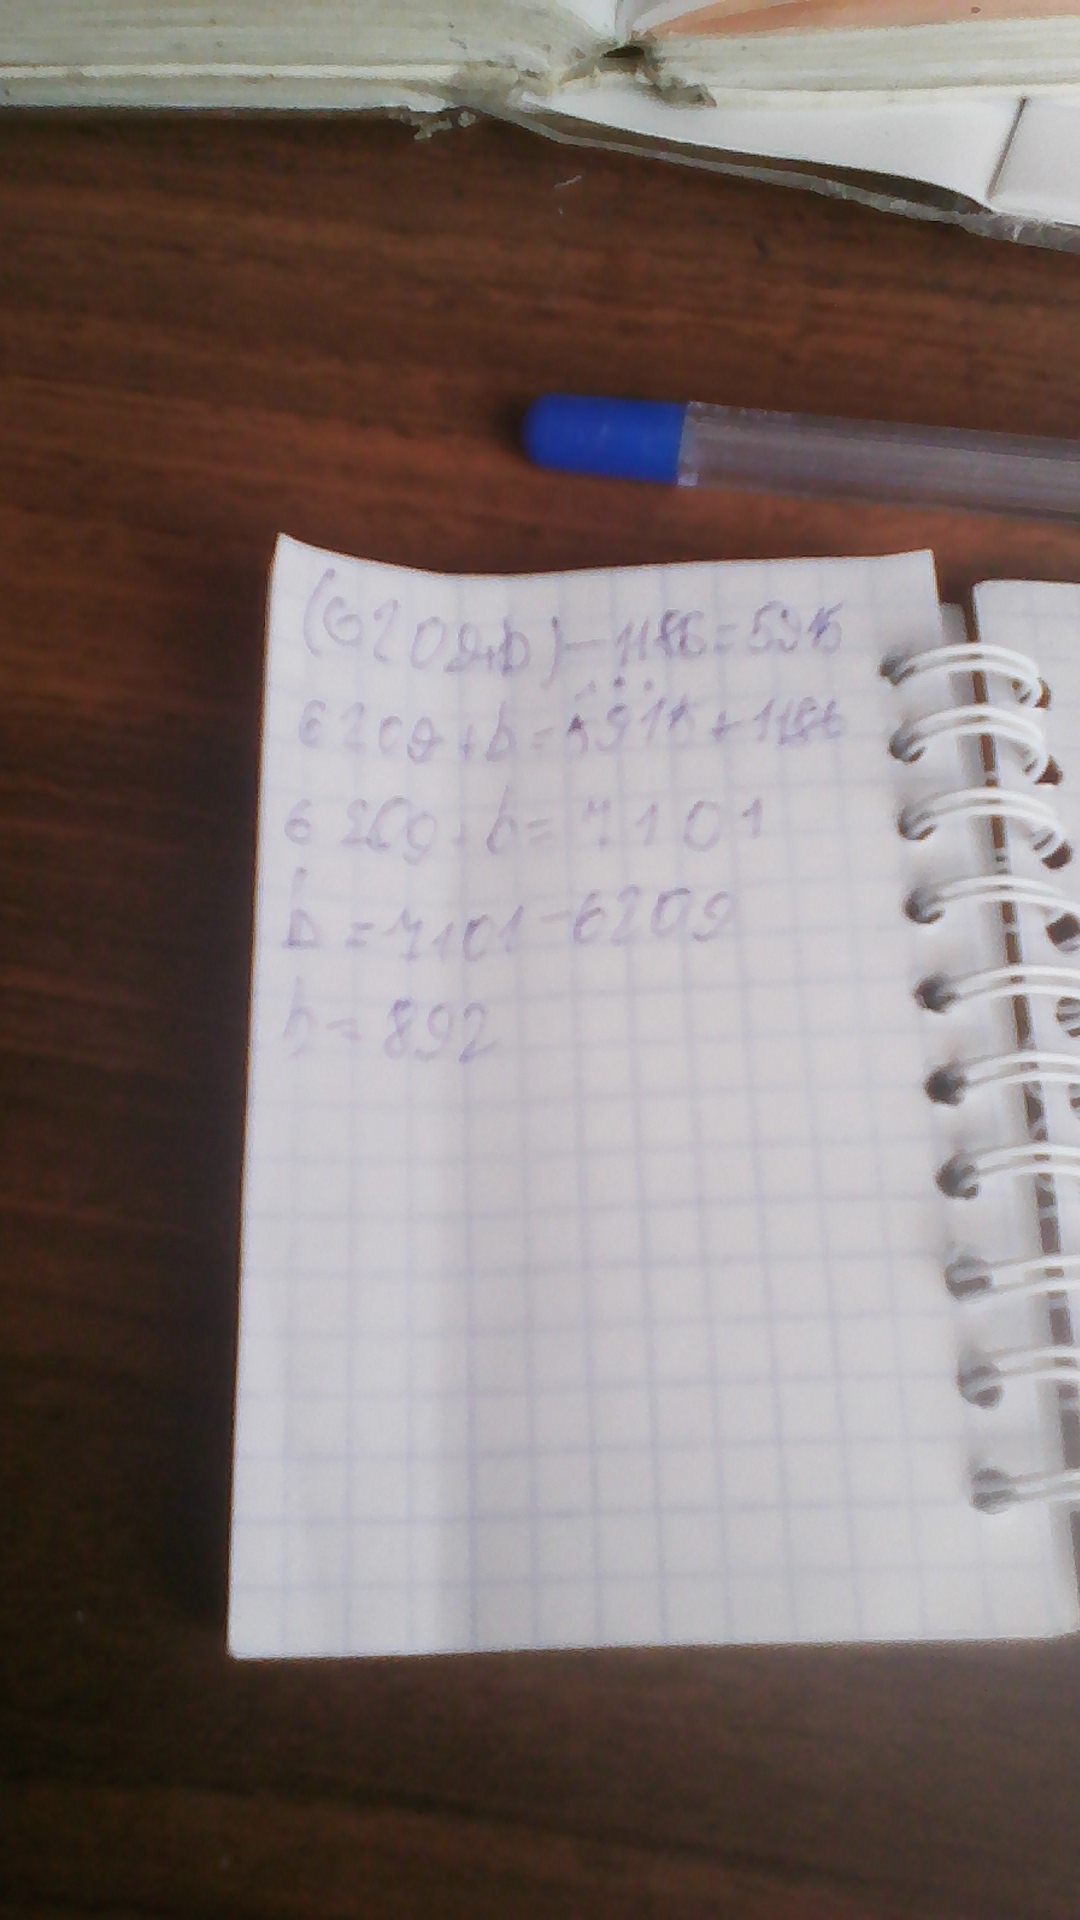 (6209+b)-1186=5915
6209+b=5915+1186
6209+b=7101
b=7101-6209
b=892